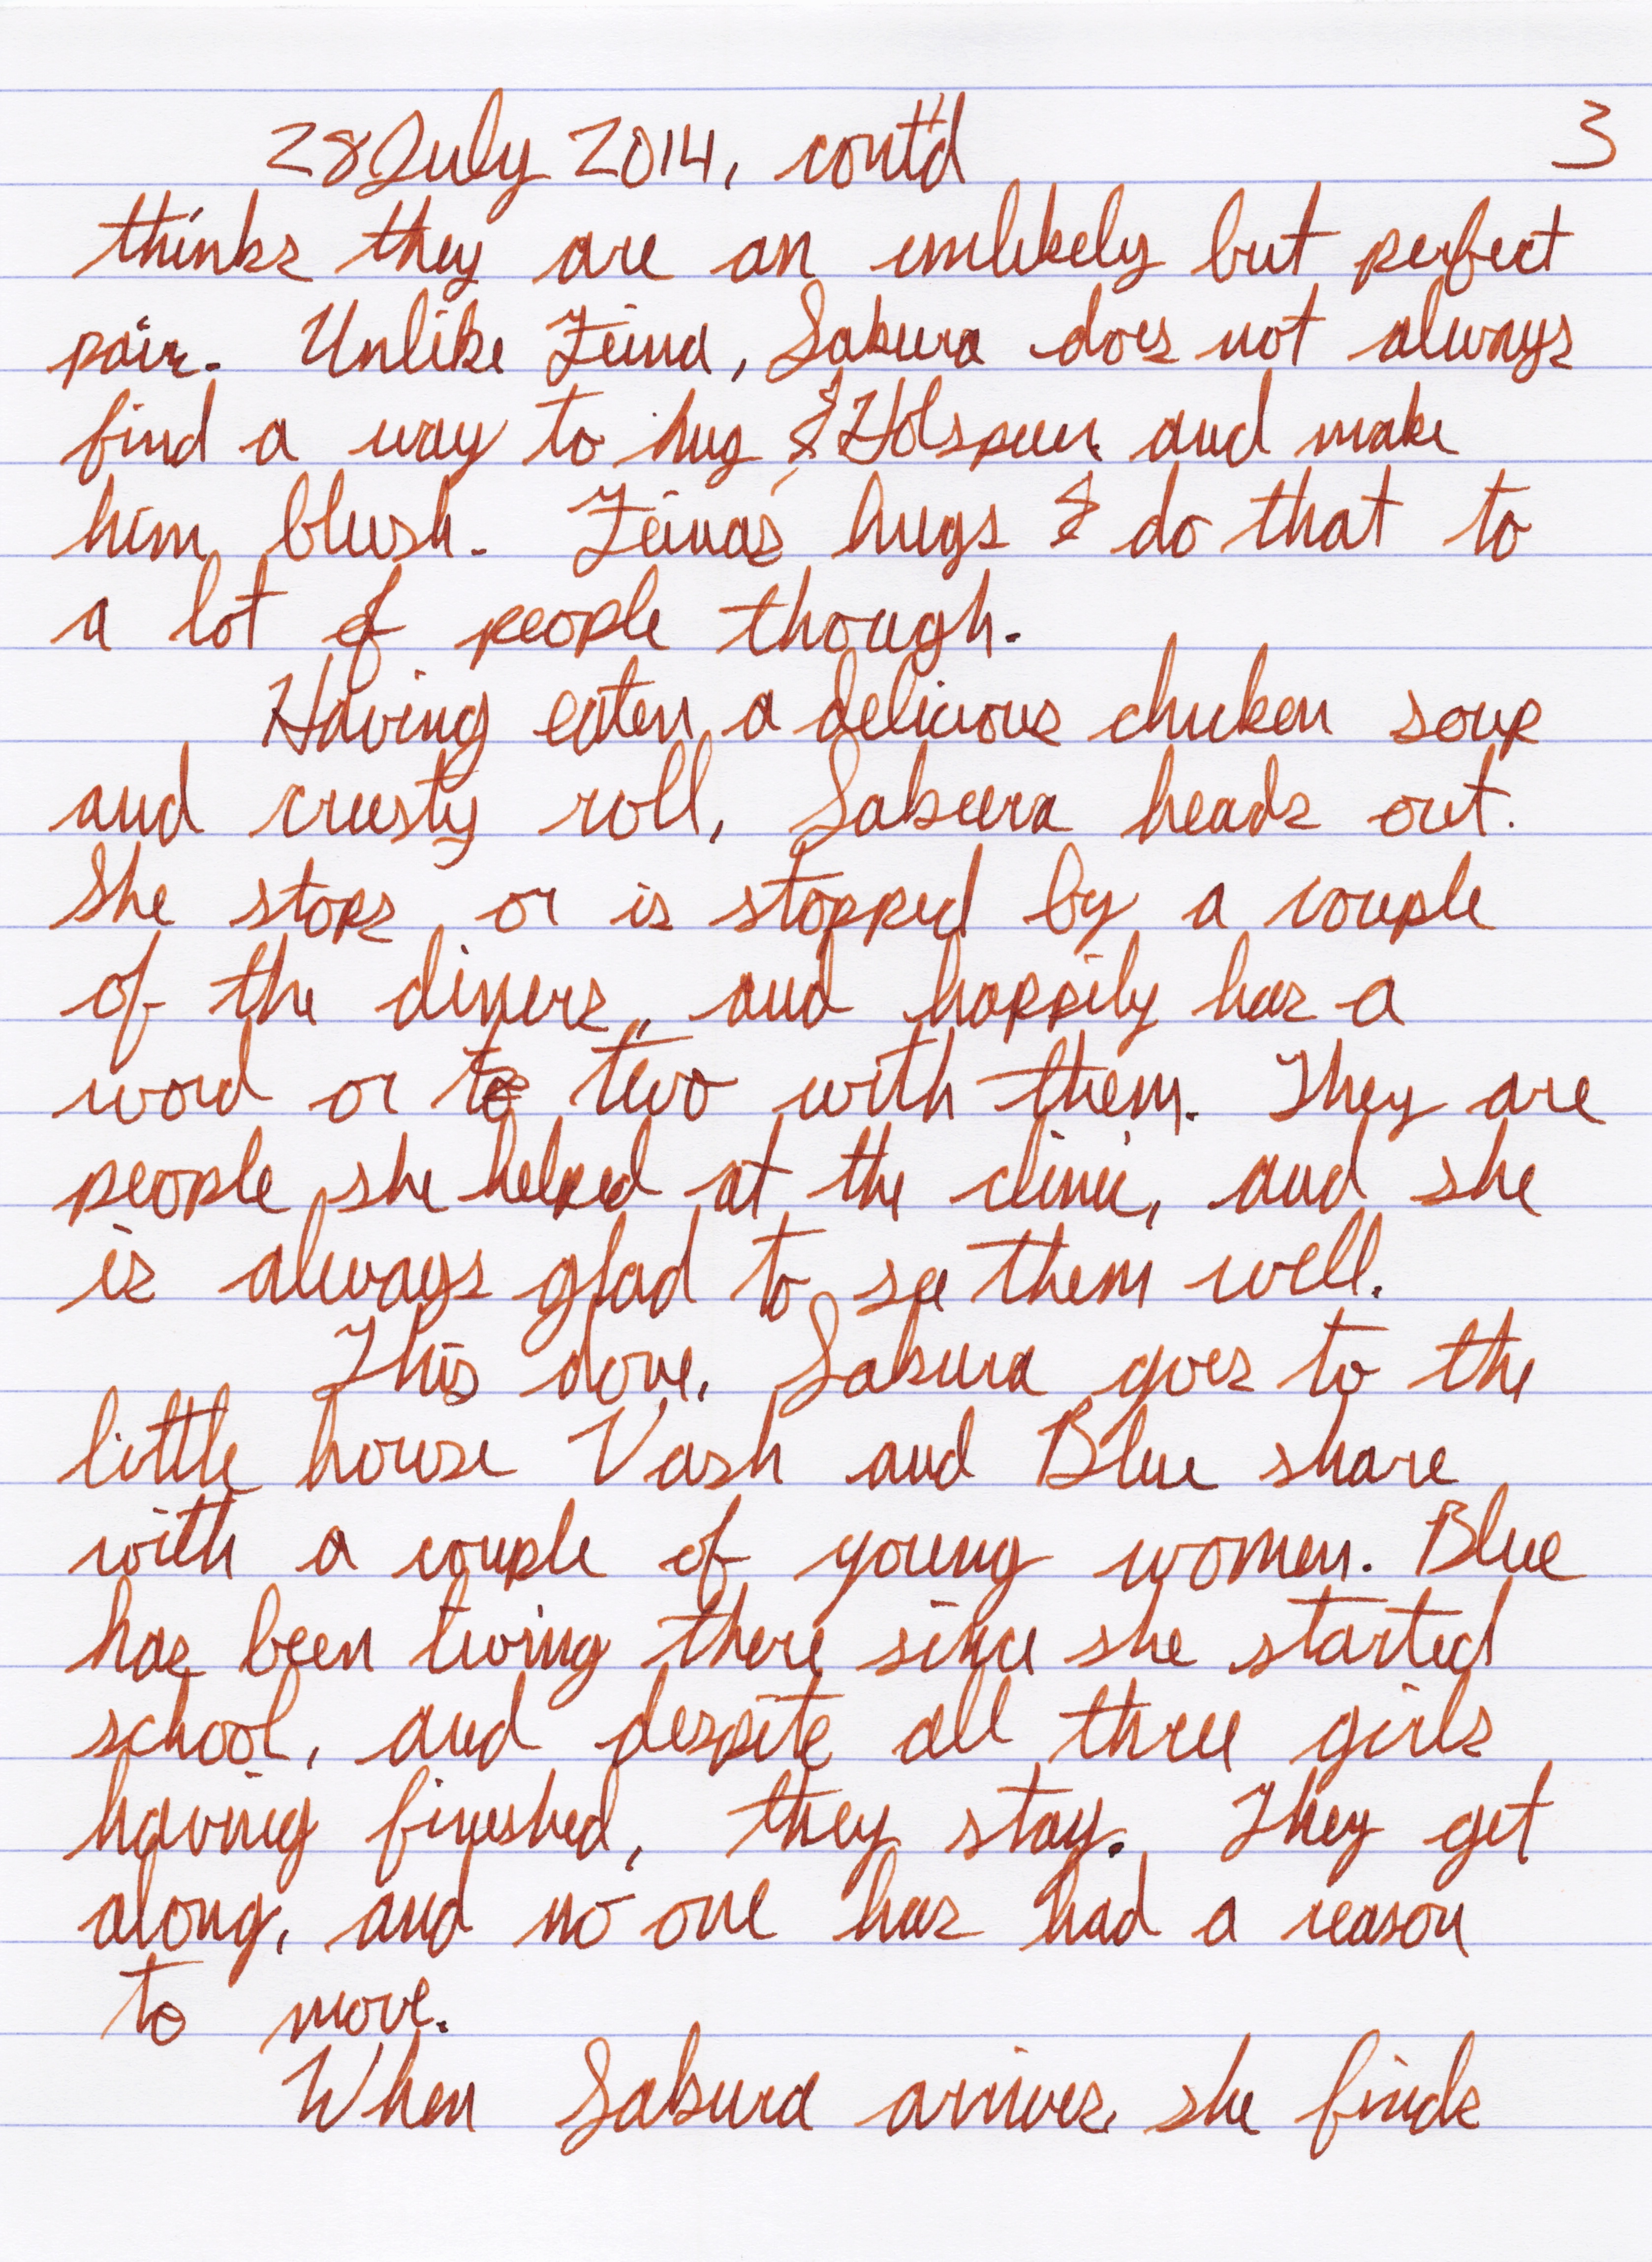 28 July 2014, cont'd 3
thinks they are an unlikely but perfect
pair. Unlike Zeina, Sakura does not always
find a way to hug Holspeur and make
him blush. Zeina's hugs do that to
a lot of people though.
Having eaten a delicious chicken soup
and crusty roll, Sakura heads out.
She stops or is stopped by a couple
of the diners, and happily has a
word or to two with them. They are
people she helped at the clinic, and she
is always glad to see them well.
This done, Sakura goes to the
little house Vash and Blue share
with a couple of young women. Blue
has been living there since she started
school, and despite all three girls
having finished, they stay. They get
along, and no one has had a reason
to move.
When Sakura arrives, she finds